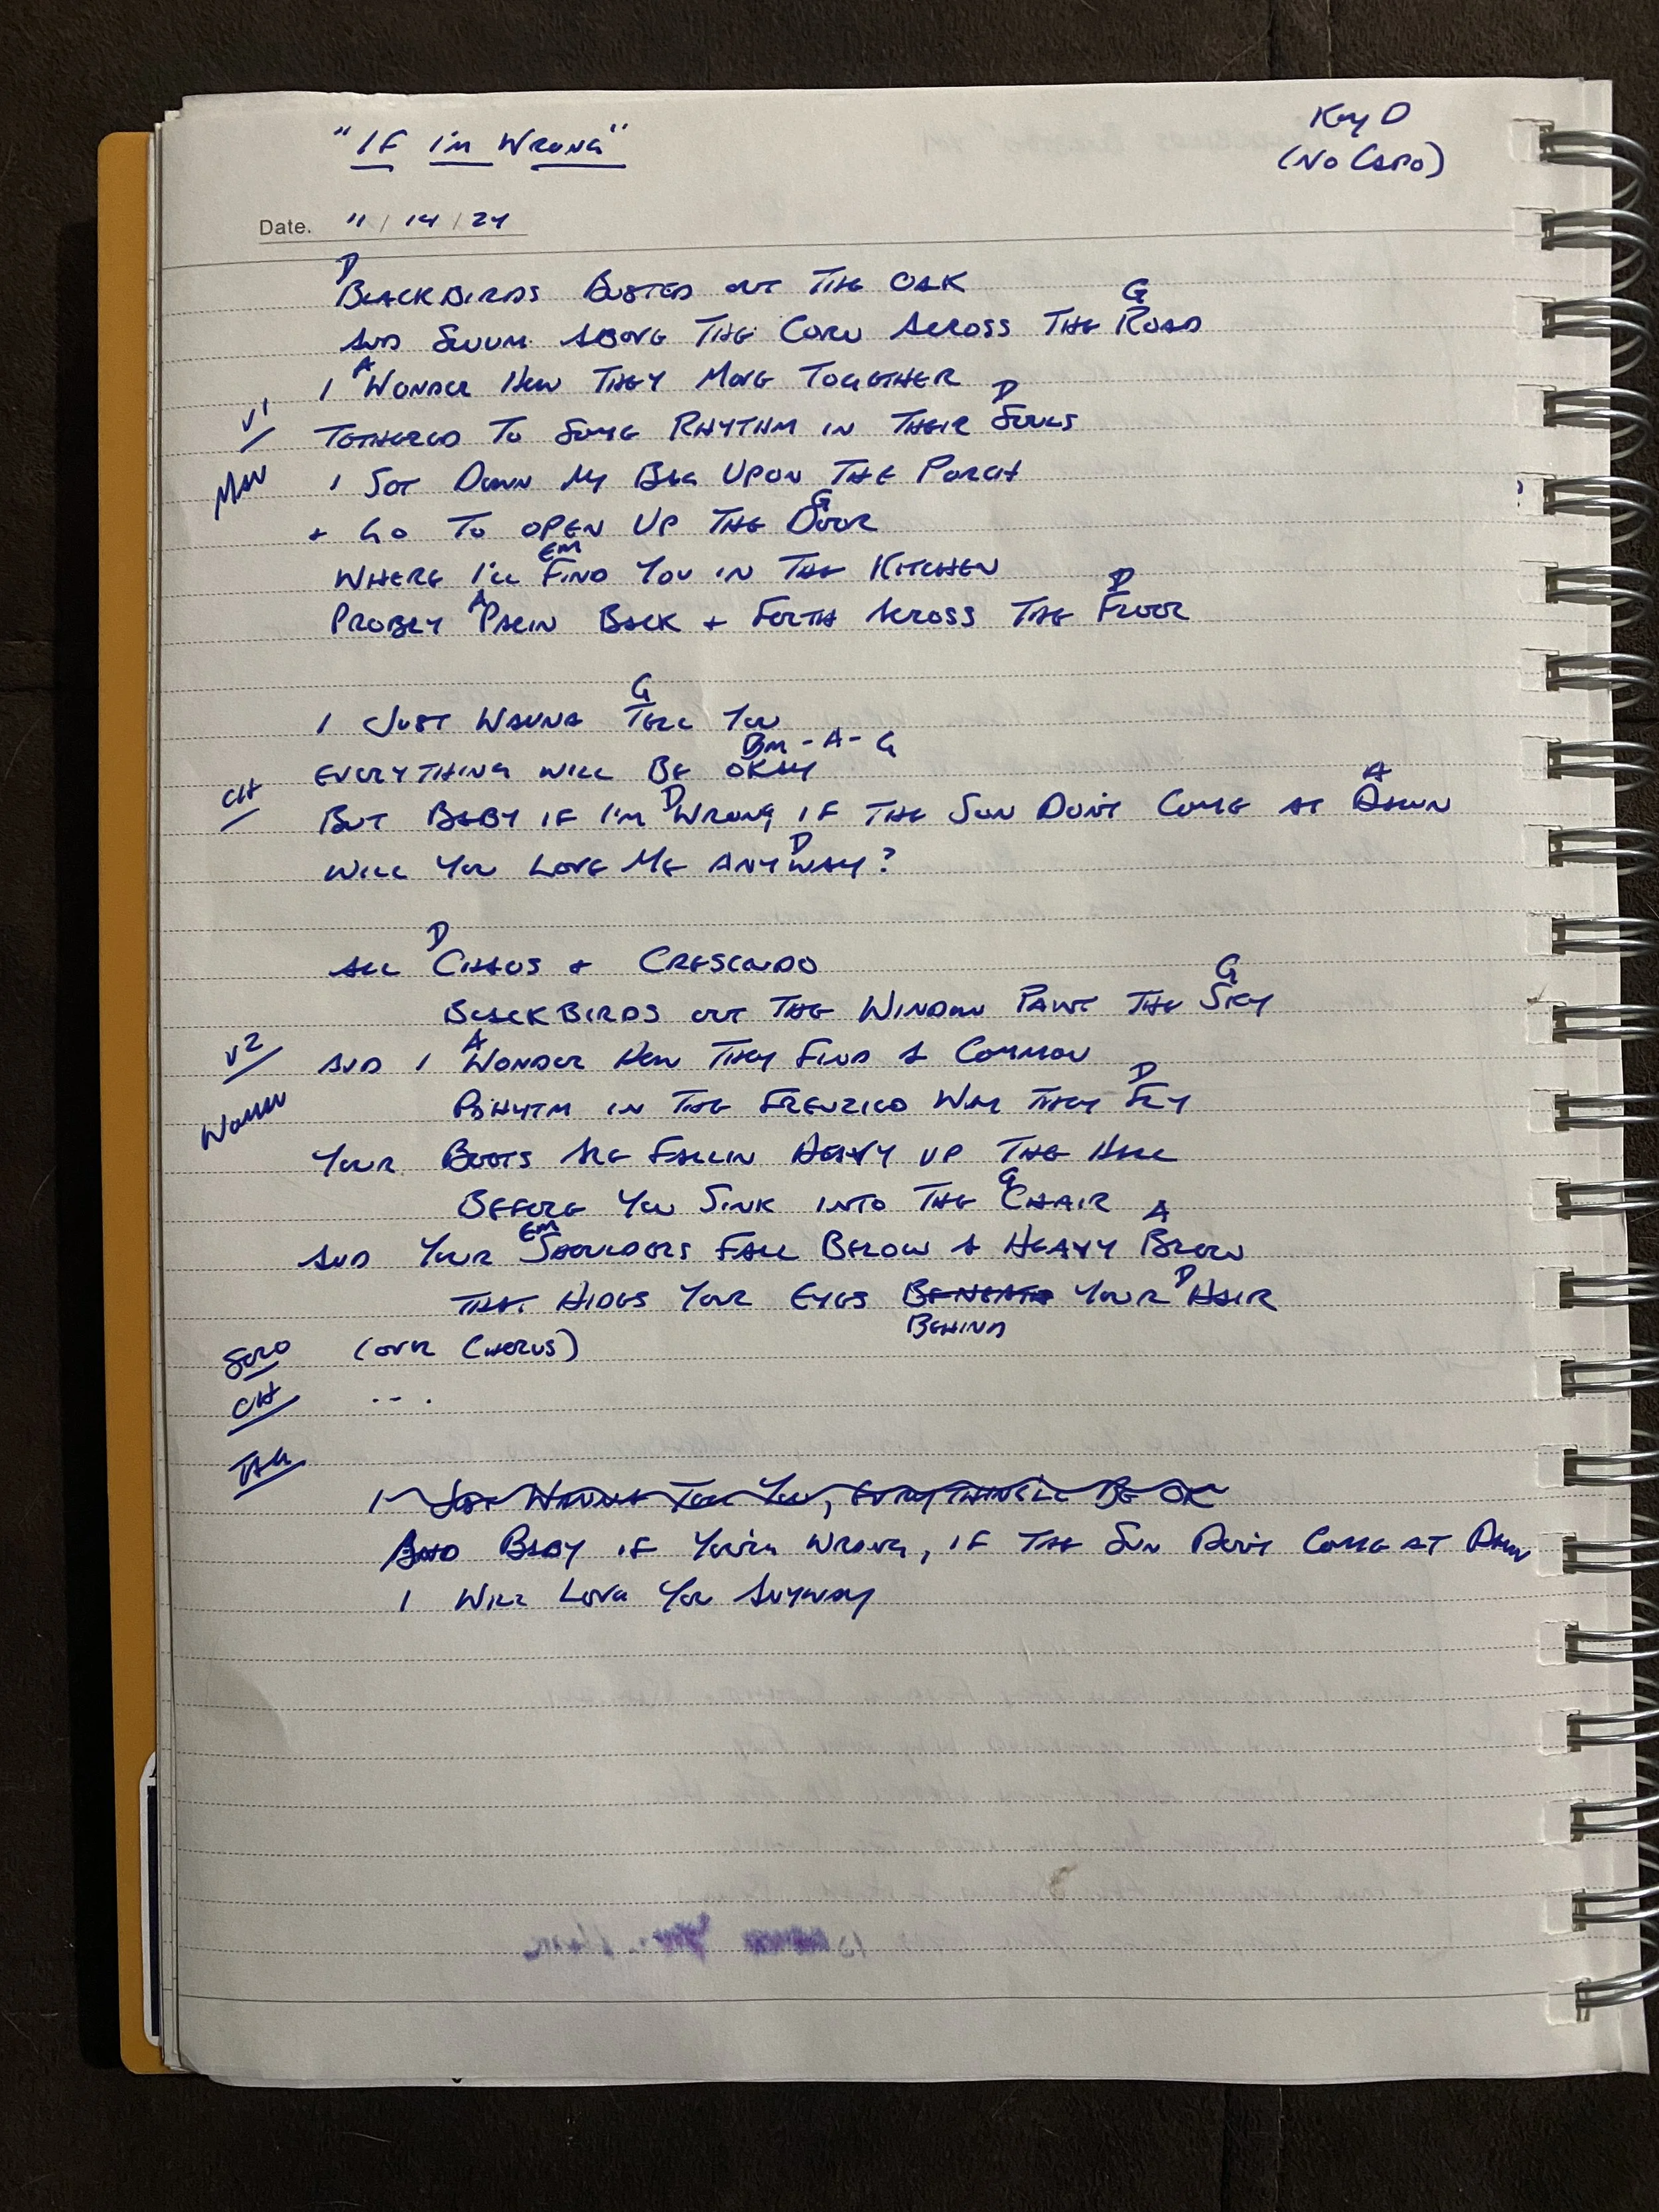 "If I'm Wrong"
Key D
(No Capo)
Date. 11 / 14 / 24
D
Blackbirds busted out the oak
G
And swum above the corn across the road
A
I wonder how they move together
D
V1
Tethered to some rhythm in their souls
Man
I sot down my bag upon the porch
G
+ go to open up the door
Em
Where I'll find you in the kitchen
A D
Probly pacin back + forth across the floor
G
I just wanna tell you
Bm - A - G
Everything will be okay
CH
D A
But baby if I'm wrong, if the sun don't come at dawn
D
Will you love me anyway?
D
All chaos + crescendo
G
Blackbirds out the window paint the sky
V2
A
And I wonder how they find a common
D
Woman
Rhytm in the frenzied way they fly
Your boots are fallin heavy up the hall
G
Before you sink into the chair
Em A
And your shoulders fall below a heavy brow
D
That hides your eyes beneath your hair
Behind
Solo (over chorus)
CH ...
Tag
I just wanna tell you, everything'll be ok
And baby if you're wrong, if the sun don't come at dawn
I will love you anyway